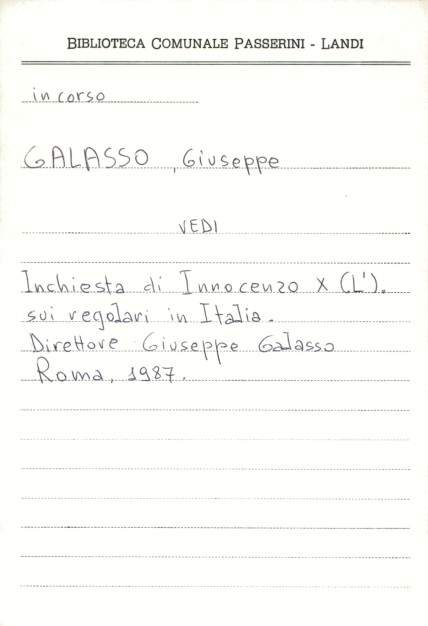 BIBLIOTECA COMUNALE PASSERINI - LANDI
in corso
GALASSO, Giuseppe
VEDI
Inchiesta di Innocenzo X (L').
sui regolari in Italia.
Direttore Giuseppe Galasso
Roma, 1987.